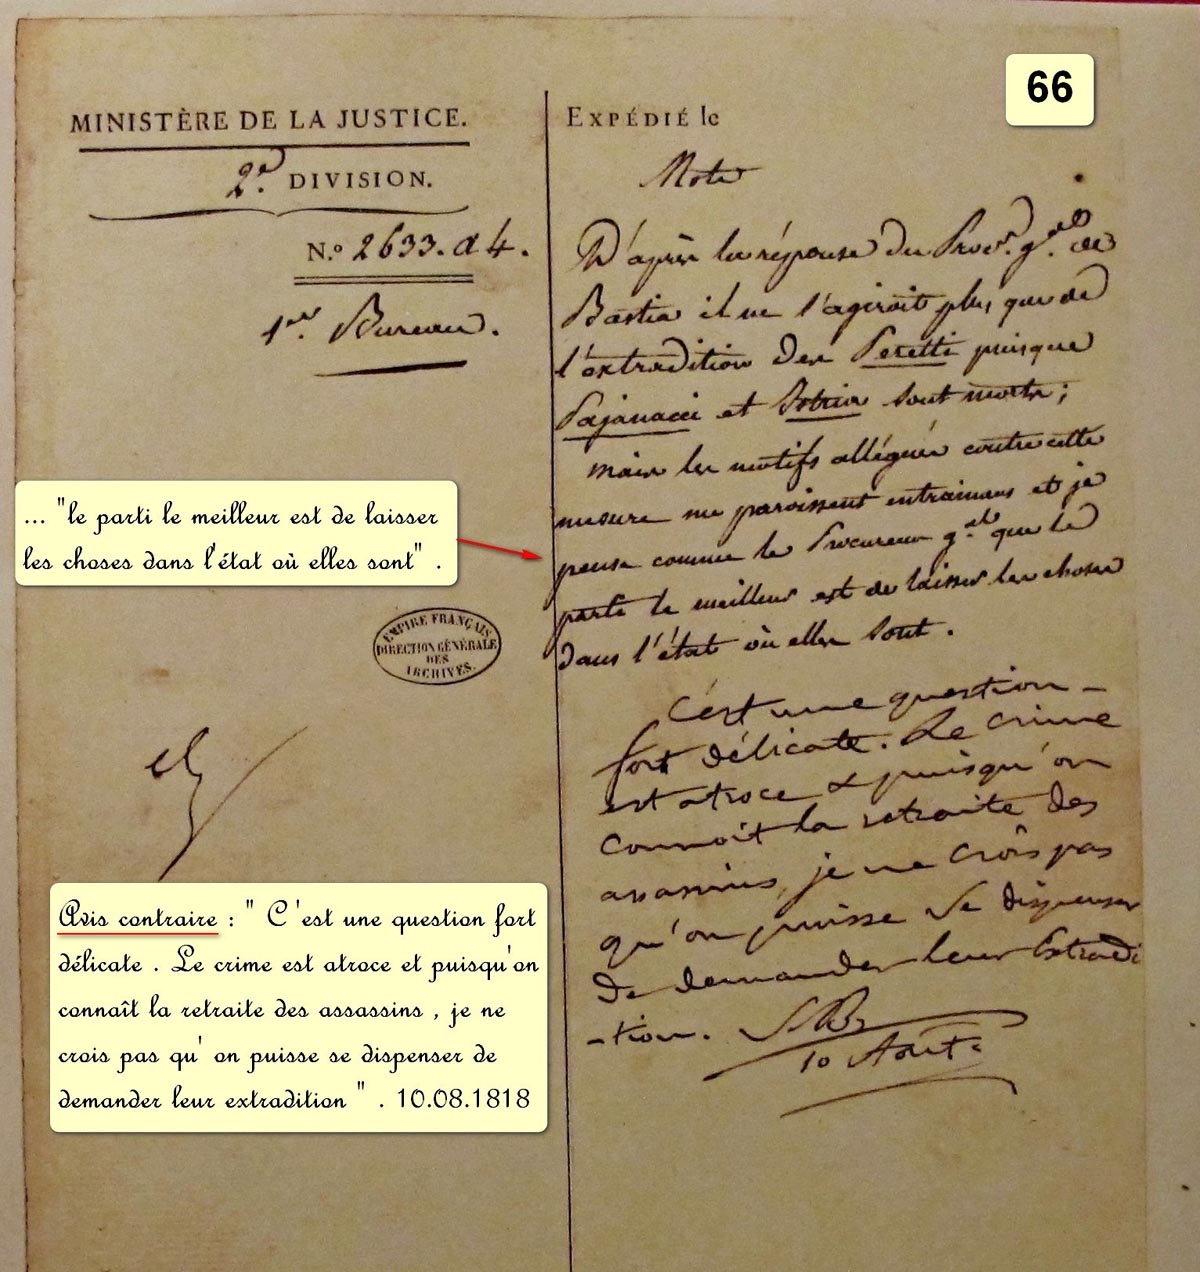 66
MINISTÈRE DE LA JUSTICE.
2e. DIVISION.
N.° 2633. d 4.
1er. Bureau.
EXPÉDIÉ le
Note
D'après la réponse du Proc.r g.ral de
Bastia il ne s'agiroit plus que de
l'extradition des Peretti puisque
Pajanacci et sont morts;
mais les motifs allégués contre cette
mesure me paroissent entrainans et je
pense comme le Procureur g.ral que le
parti le meilleur est de laisser les choses
dans l'état où elles sont.
C'est une question
fort délicate. Le crime
est atroce & puisqu'on
connoit la retraite des
assassins, je ne crois pas
qu'on puisse se dispenser
de demander leur Extradi
-tion.
10 Août
... "le parti le meilleur est de laisser
les choses dans l'état où elles sont" .
EMPIRE FRANÇAIS
DIRECTION GÉNÉRALE
DES
ARCHIVES.
Avis contraire : " C'est une question fort
délicate . Le crime est atroce et puisqu'on
connaît la retraite des assassins , je ne
crois pas qu' on puisse se dispenser de
demander leur extradition " . 10.08.1818